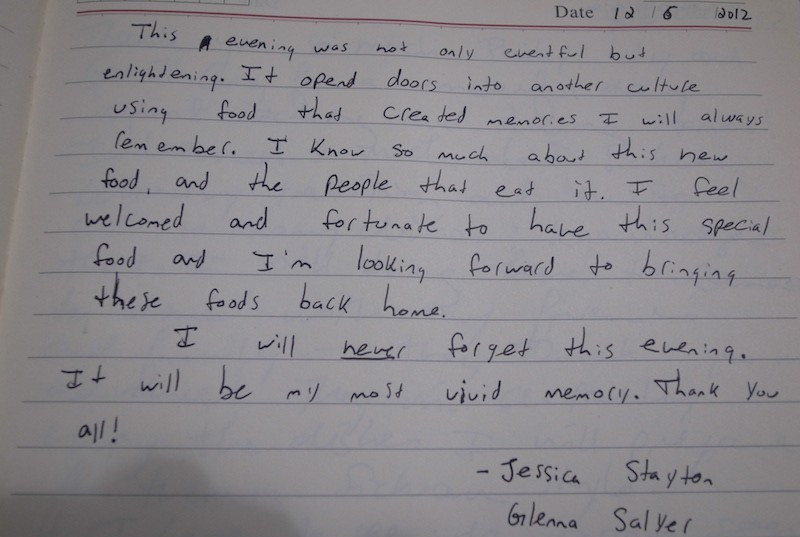 Date 12/6/2012
This evening was not only eventful but
enlightening. It opend doors into another culture
using food that created memories I will always
remember. I know so much about this new
food, and the people that eat it. I feel
welcomed and fortunate to have this special
food and I'm looking forward to bringing
these foods back home.
I will never forget this evening.
It will be my most vivid memory. Thank you
all!
- Jessica Stayton
Glenna Salyer